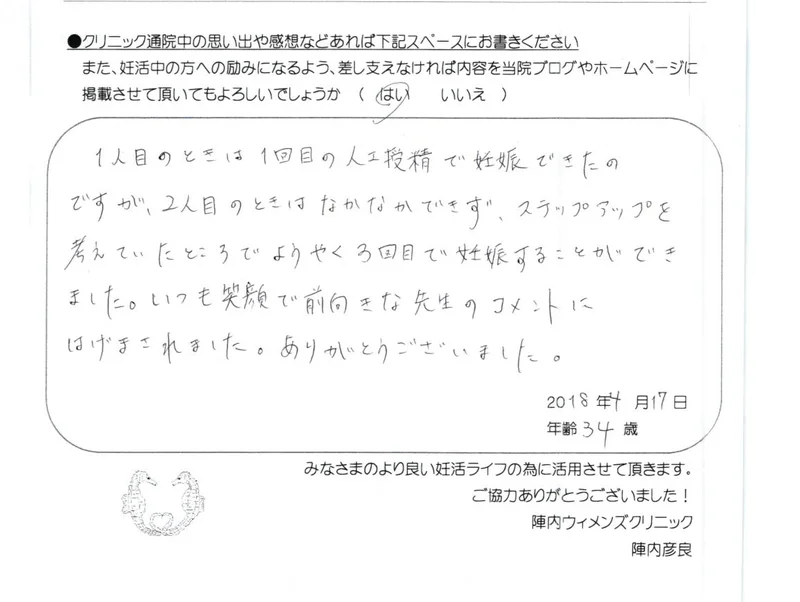 ●クリニック通院中の思い出や感想などあれば下記スペースにお書きください
また、妊活中の方への励みになるよう、差し支えなければ内容を当院ブログやホームページに
掲載させて頂いてもよろしいでしょうか （ はい　いいえ ）
1人目のときは1回目の人工授精で妊娠できたの
ですが、2人目のときはなかなかできず、ステップアップを
考えていたところでようやく3回目で妊娠することができ
ました。いつも笑顔で前向きな先生のコメントに
はげまされました。ありがとうございました。
2018年4月17日
年齢34歳
みなさまのより良い妊活ライフの為に活用させて頂きます。
ご協力ありがとうございました！
陣内ウィメンズクリニック
陣内彦良